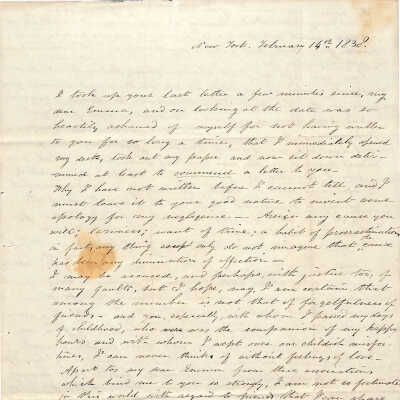 New York. February 14th. 1838.
I took up your last letter a few minutes since, my
dear Emma, and on looking at the date was so
heartily ashamed of myself for not having written
to you for so long a time, that I immediately opened
my desk, took out my paper and now sit down deter-
mined at least to commend a letter to you.
Why I have not written before I cannot tell, and I
must leave it to your good nature to invent some
apology for my negligence — Assign any cause you
will; laziness; want of time; a habit of procrastination
in fact, any thing only do not imagine that cause
has been any diminution of affection —
I may be accused, and perhaps, with justice too, of
many faults, but I hope, nay, I am certain that
among the number is not that of forgetfulness of
friends — and you, especially, with whom I passed my days
of childhood, who were was the companion of my happy
hours and with whom I wept over our childish misfor-
tunes, I can never think of without feelings of love —
Apart too my dear Emma from these associations
which bind me to you so strongly, I am not so fortunate
in this world with regard to friends that I can share